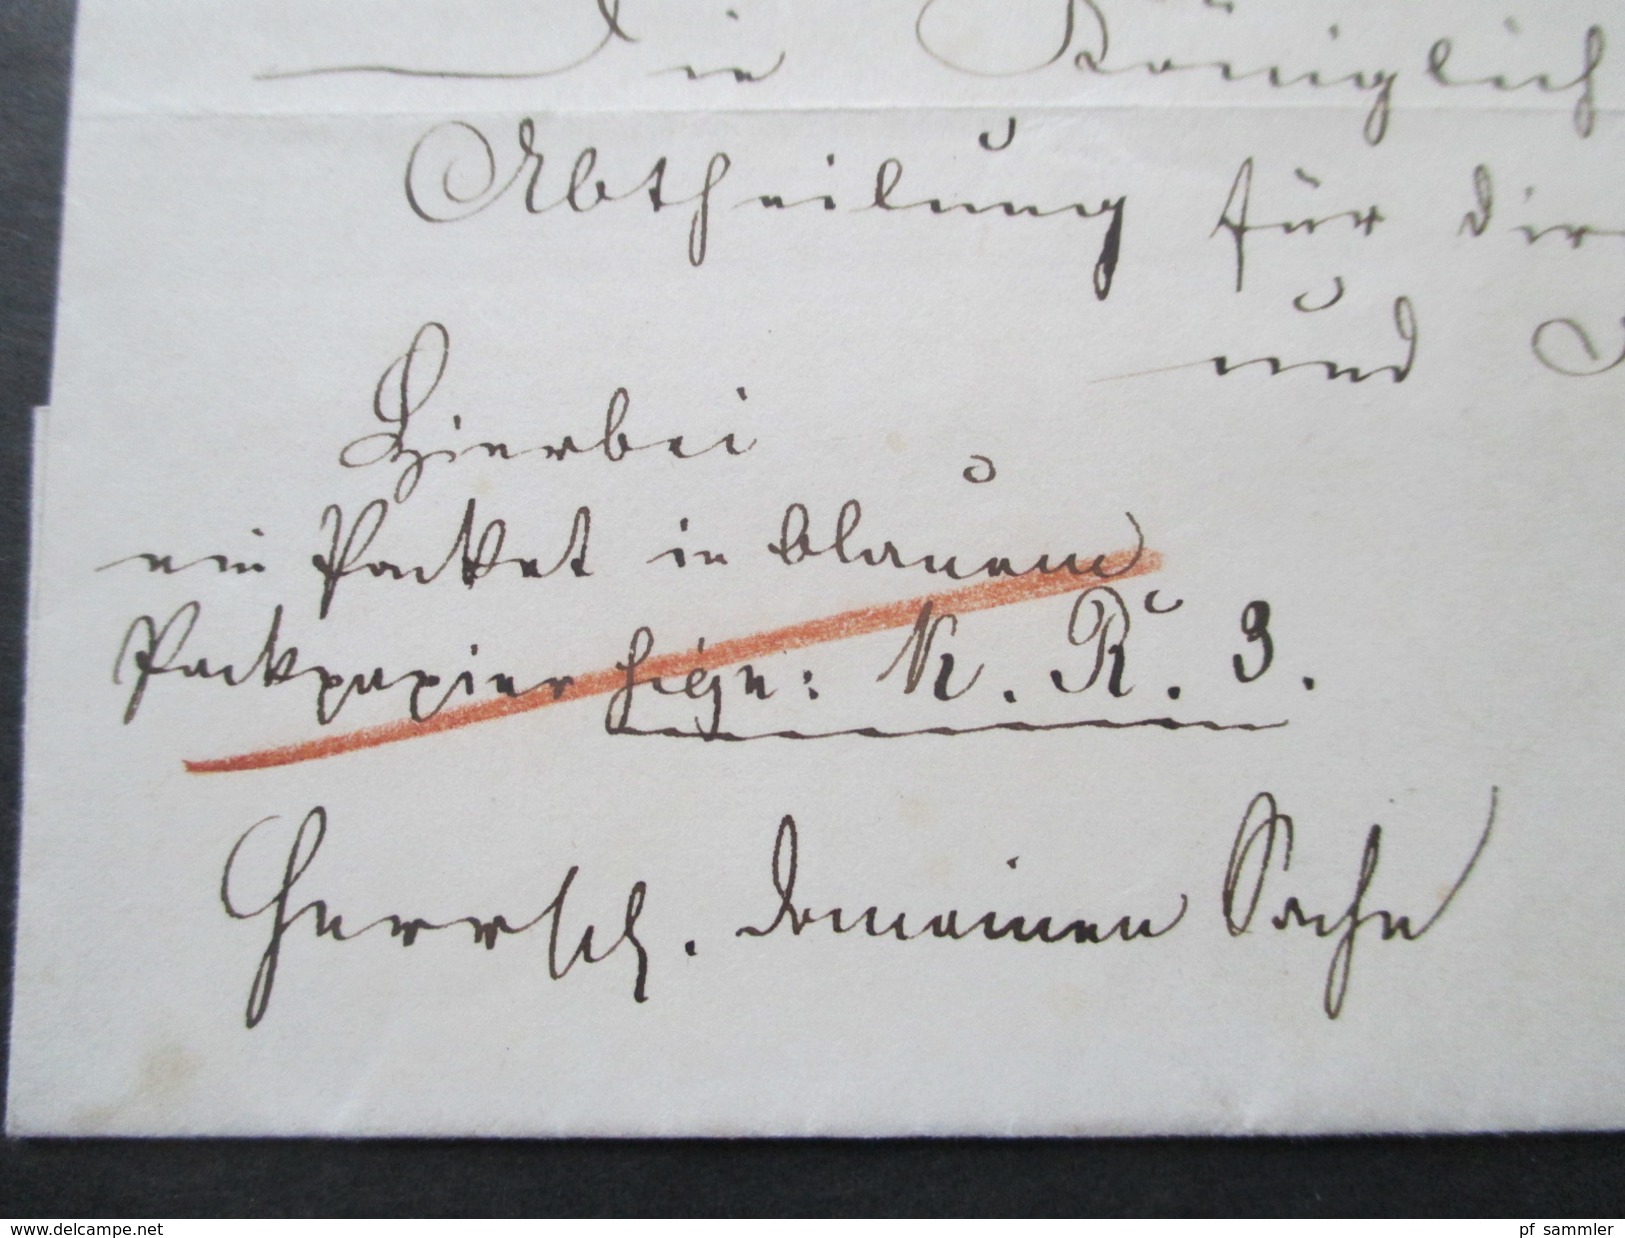 Die Königlich
Abtheilung für dir
und
Hierbei
ein Packet in blauem
Packpapier sign: K. R. 3.
Herrsch. Domainen Sache
www.delcampe.net
pf sammler